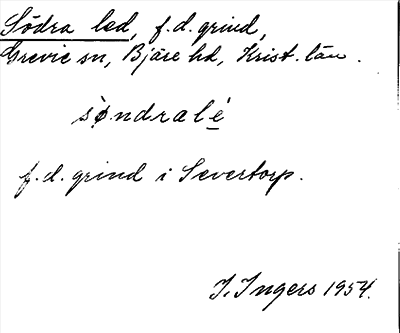 Södra led, f.d. grind,
Grevie sn, Bjäre hd, Krist. län.
sø̀ndralé
f.d. grind i Severtorp.
I. Ingers 1954.